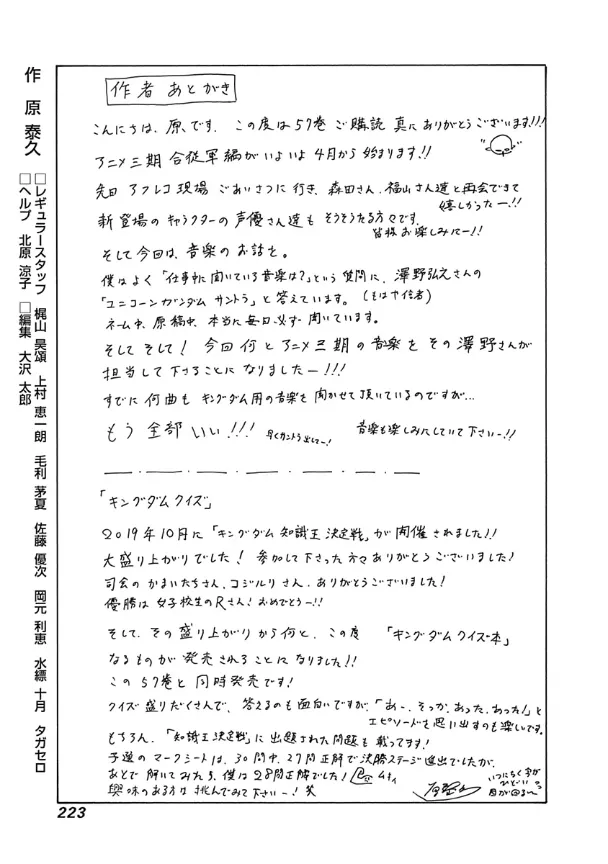 作者 あとがき
こんにちは、原です。この度は57巻ご購読 真にありがとうございます!!!
アニメ三期 合従軍編がいよいよ4月から始まります!!
先日 アフレコ現場 ごあいさつに行き、森田さん、福山さん達と再会できて
嬉しかったー!!
新登場のキャラクターの声優さん達も そうそうたる方々です。
皆様お楽しみにー!!
そして今回は、音楽のお話を。
僕はよく「仕事中に聞いている音楽は?」という質問に、澤野弘之さんの
「ユニコーンガンダム サントラ」と答えています。(もはや信者)
ネーム中、原稿中、本当に毎日必ず聞いています。
そしてそして! 今回何とアニメ三期の音楽を その澤野さんが
担当して下さることになりましたー!!!
すでに何曲も キングダム用の音楽を聞かせて頂いているのですが…
もう全部いい!!!
早くサントラ出してー!
音楽も楽しみにしていて下さいー!!
「キングダムクイズ」
2019年10月に「キングダム知識王決定戦」が開催されました!!
大盛り上がりでした! 参加して下さった方々ありがとうございました!
司会のかまいたちさん、コジルリさん、ありがとうございました!
優勝は女子校生のRさん! おめでとうー!!
そして、その盛り上がりから何と、この度 「キングダムクイズ本」
なるものが発売されることになりました!!
この57巻と同時発売です!
クイズ盛りだくさんで、答えるのも面白いですが、「あー、そっか、あった、あった!」と
エピソードを思い出すのも楽しいです。
もちろん、「知識王決定戦」に出題された問題も載ってます!
予選のマークシートは、30問中、27問正解で決勝ステージ進出でしたが、
あとで解いてみたら、僕は28問正解でした!
興味のある方は挑んでみて下さいー! 笑
いつにもく字が
ひどい
目が回るー
作 原 泰久
□レギュラースタッフ 梶山 昊頌 上村 恵一朗 毛利 茅夏 佐藤 優次 岡元 利恵 水縹 十月 タガセロ
□ヘルプ 北原 涼子 □編集 大沢 太郎
223